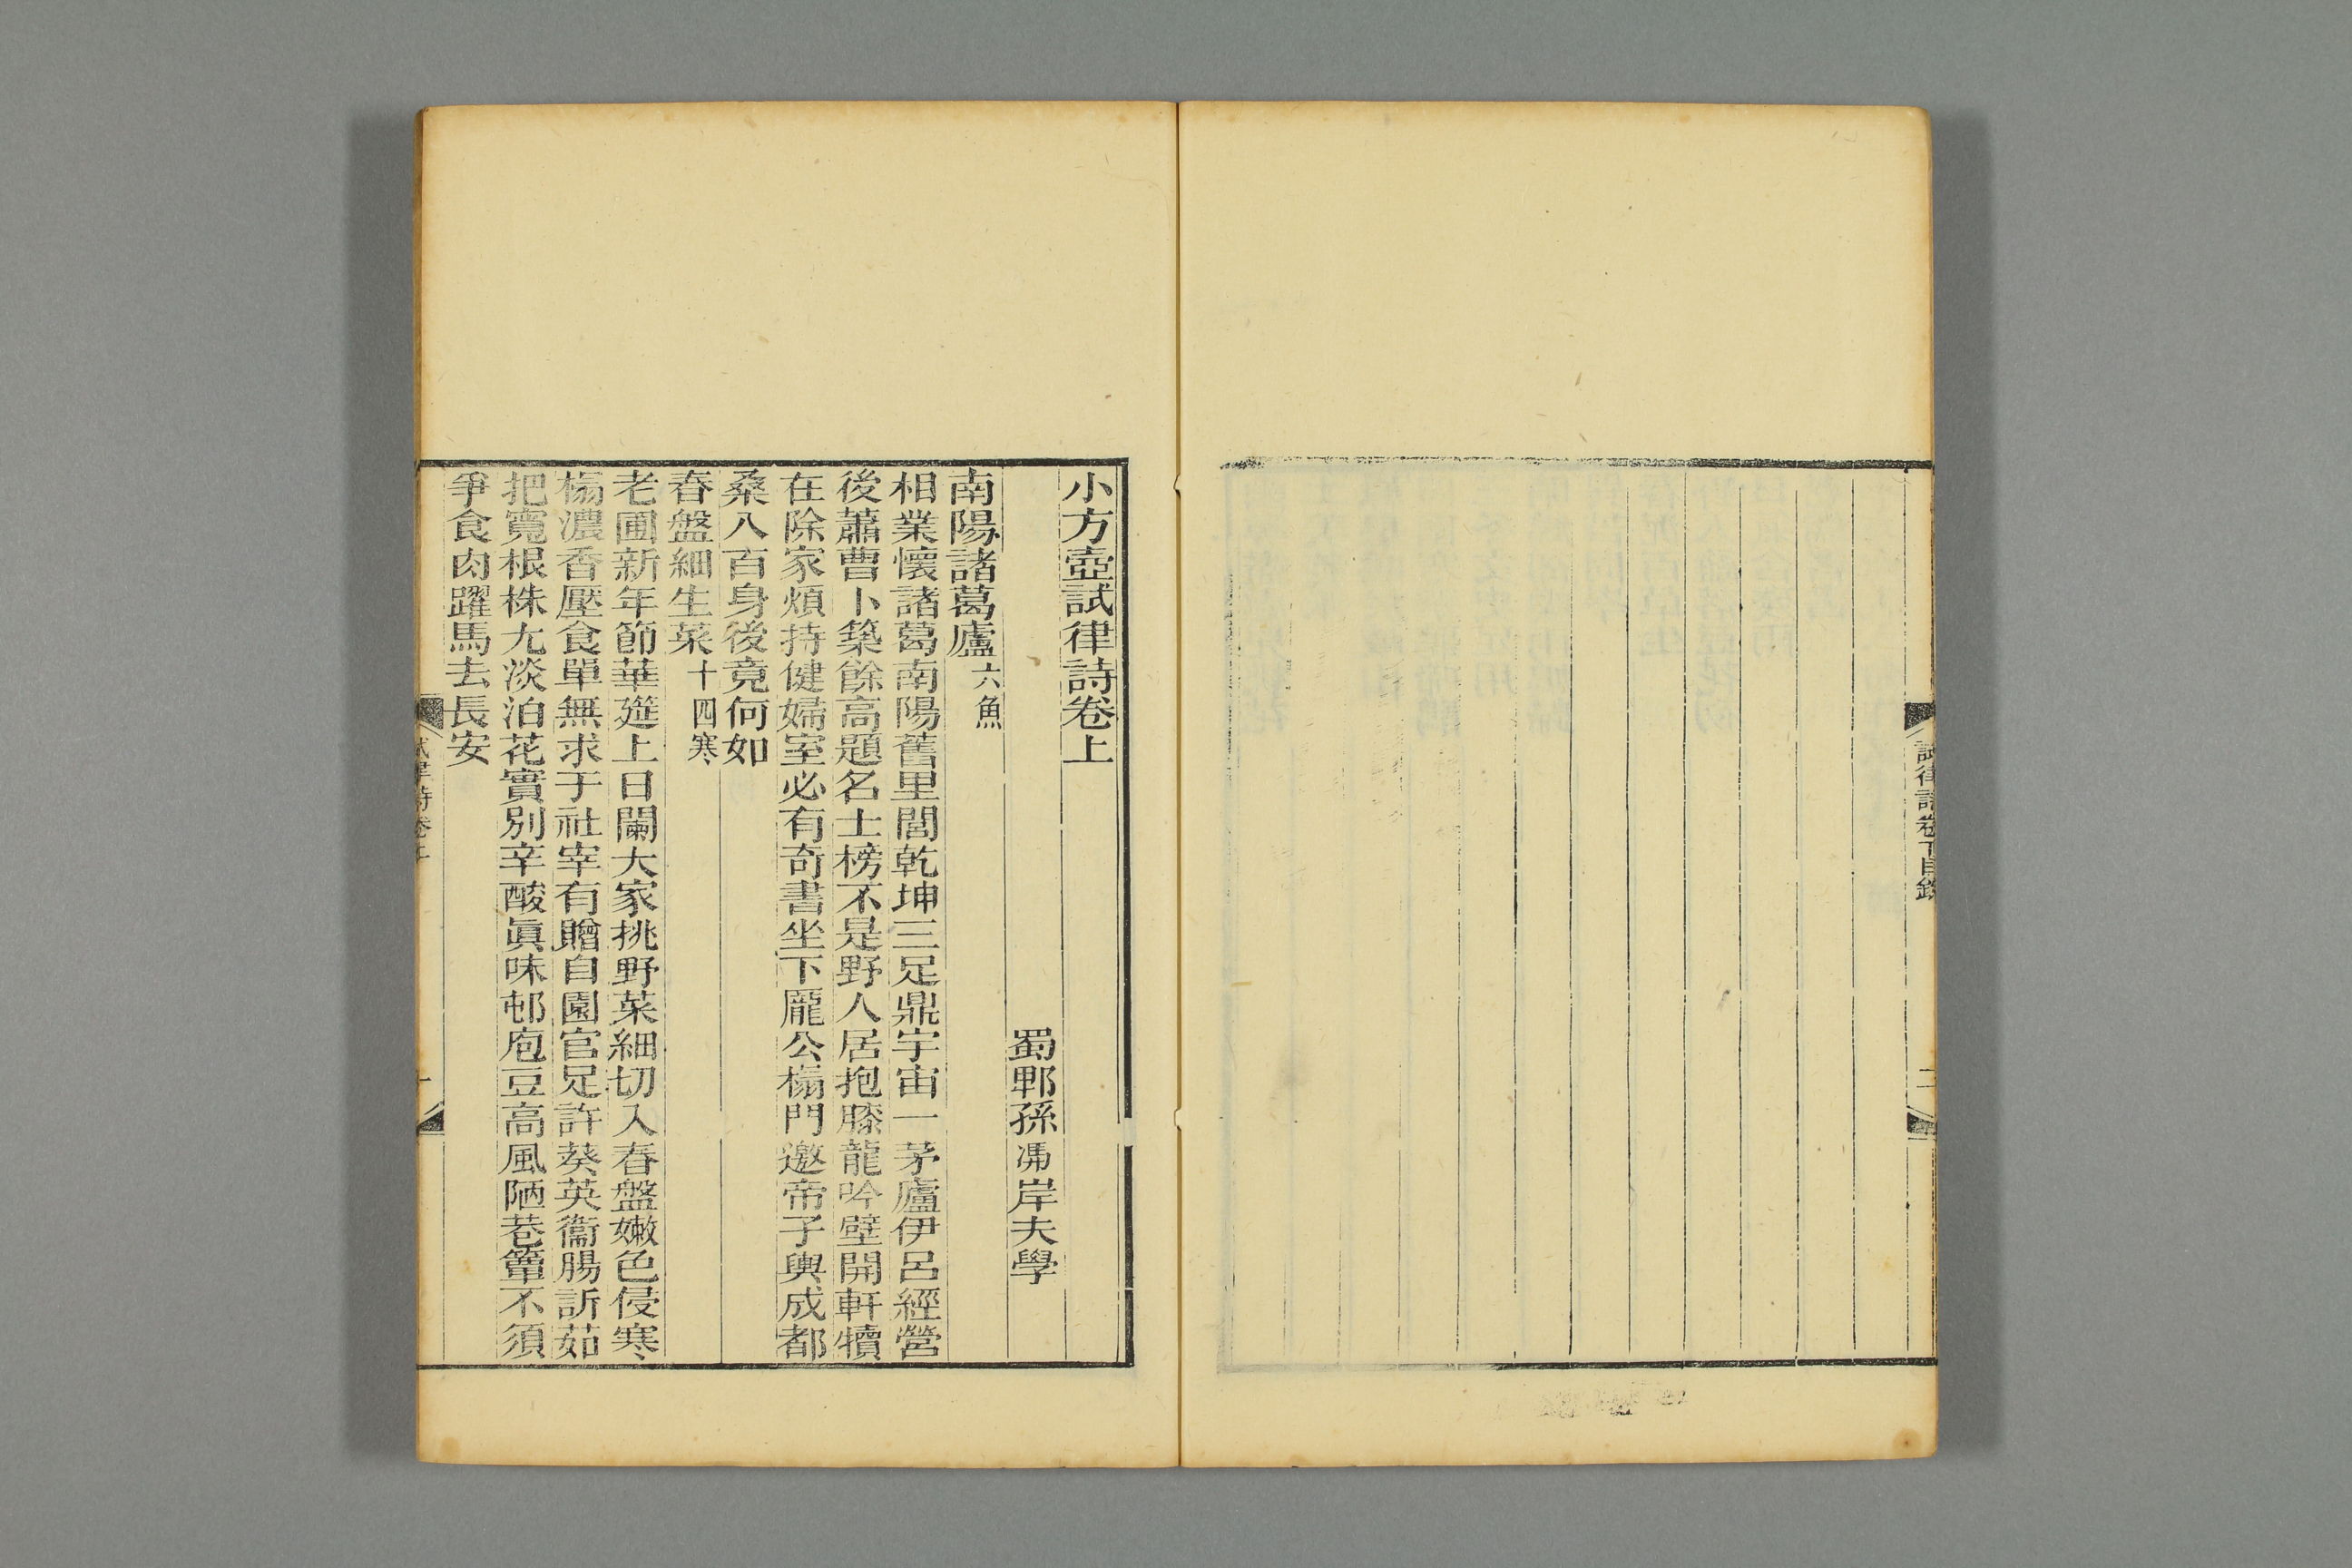 試律詩卷下目錄
二
小方壺試律詩卷上
蜀郫孫澍岸夫學
南陽諸葛廬六魚
相業懷諸葛南陽舊里閭乾坤三足鼎宇宙一茅廬伊呂經營
後蕭曹卜築餘高題名士榜不是野人居抱膝龍吟壁開軒犢
在除家煩持健婦室必有奇書坐下龐公榻門邀帝子輿成都
桑八百身後竟何如
春盤細生菜十四寒
老圃新年節華筵上日闌大家挑野菜細切入春盤嫩色侵寒
榻濃香壓食單無求于社宰有贈自園官足許葵英衞腸訢茹
把寬根株尢淡泊花實別辛酸眞味邨庖豆高風陋巷簞不須
爭食肉躍馬去長安
試律詩卷上
一